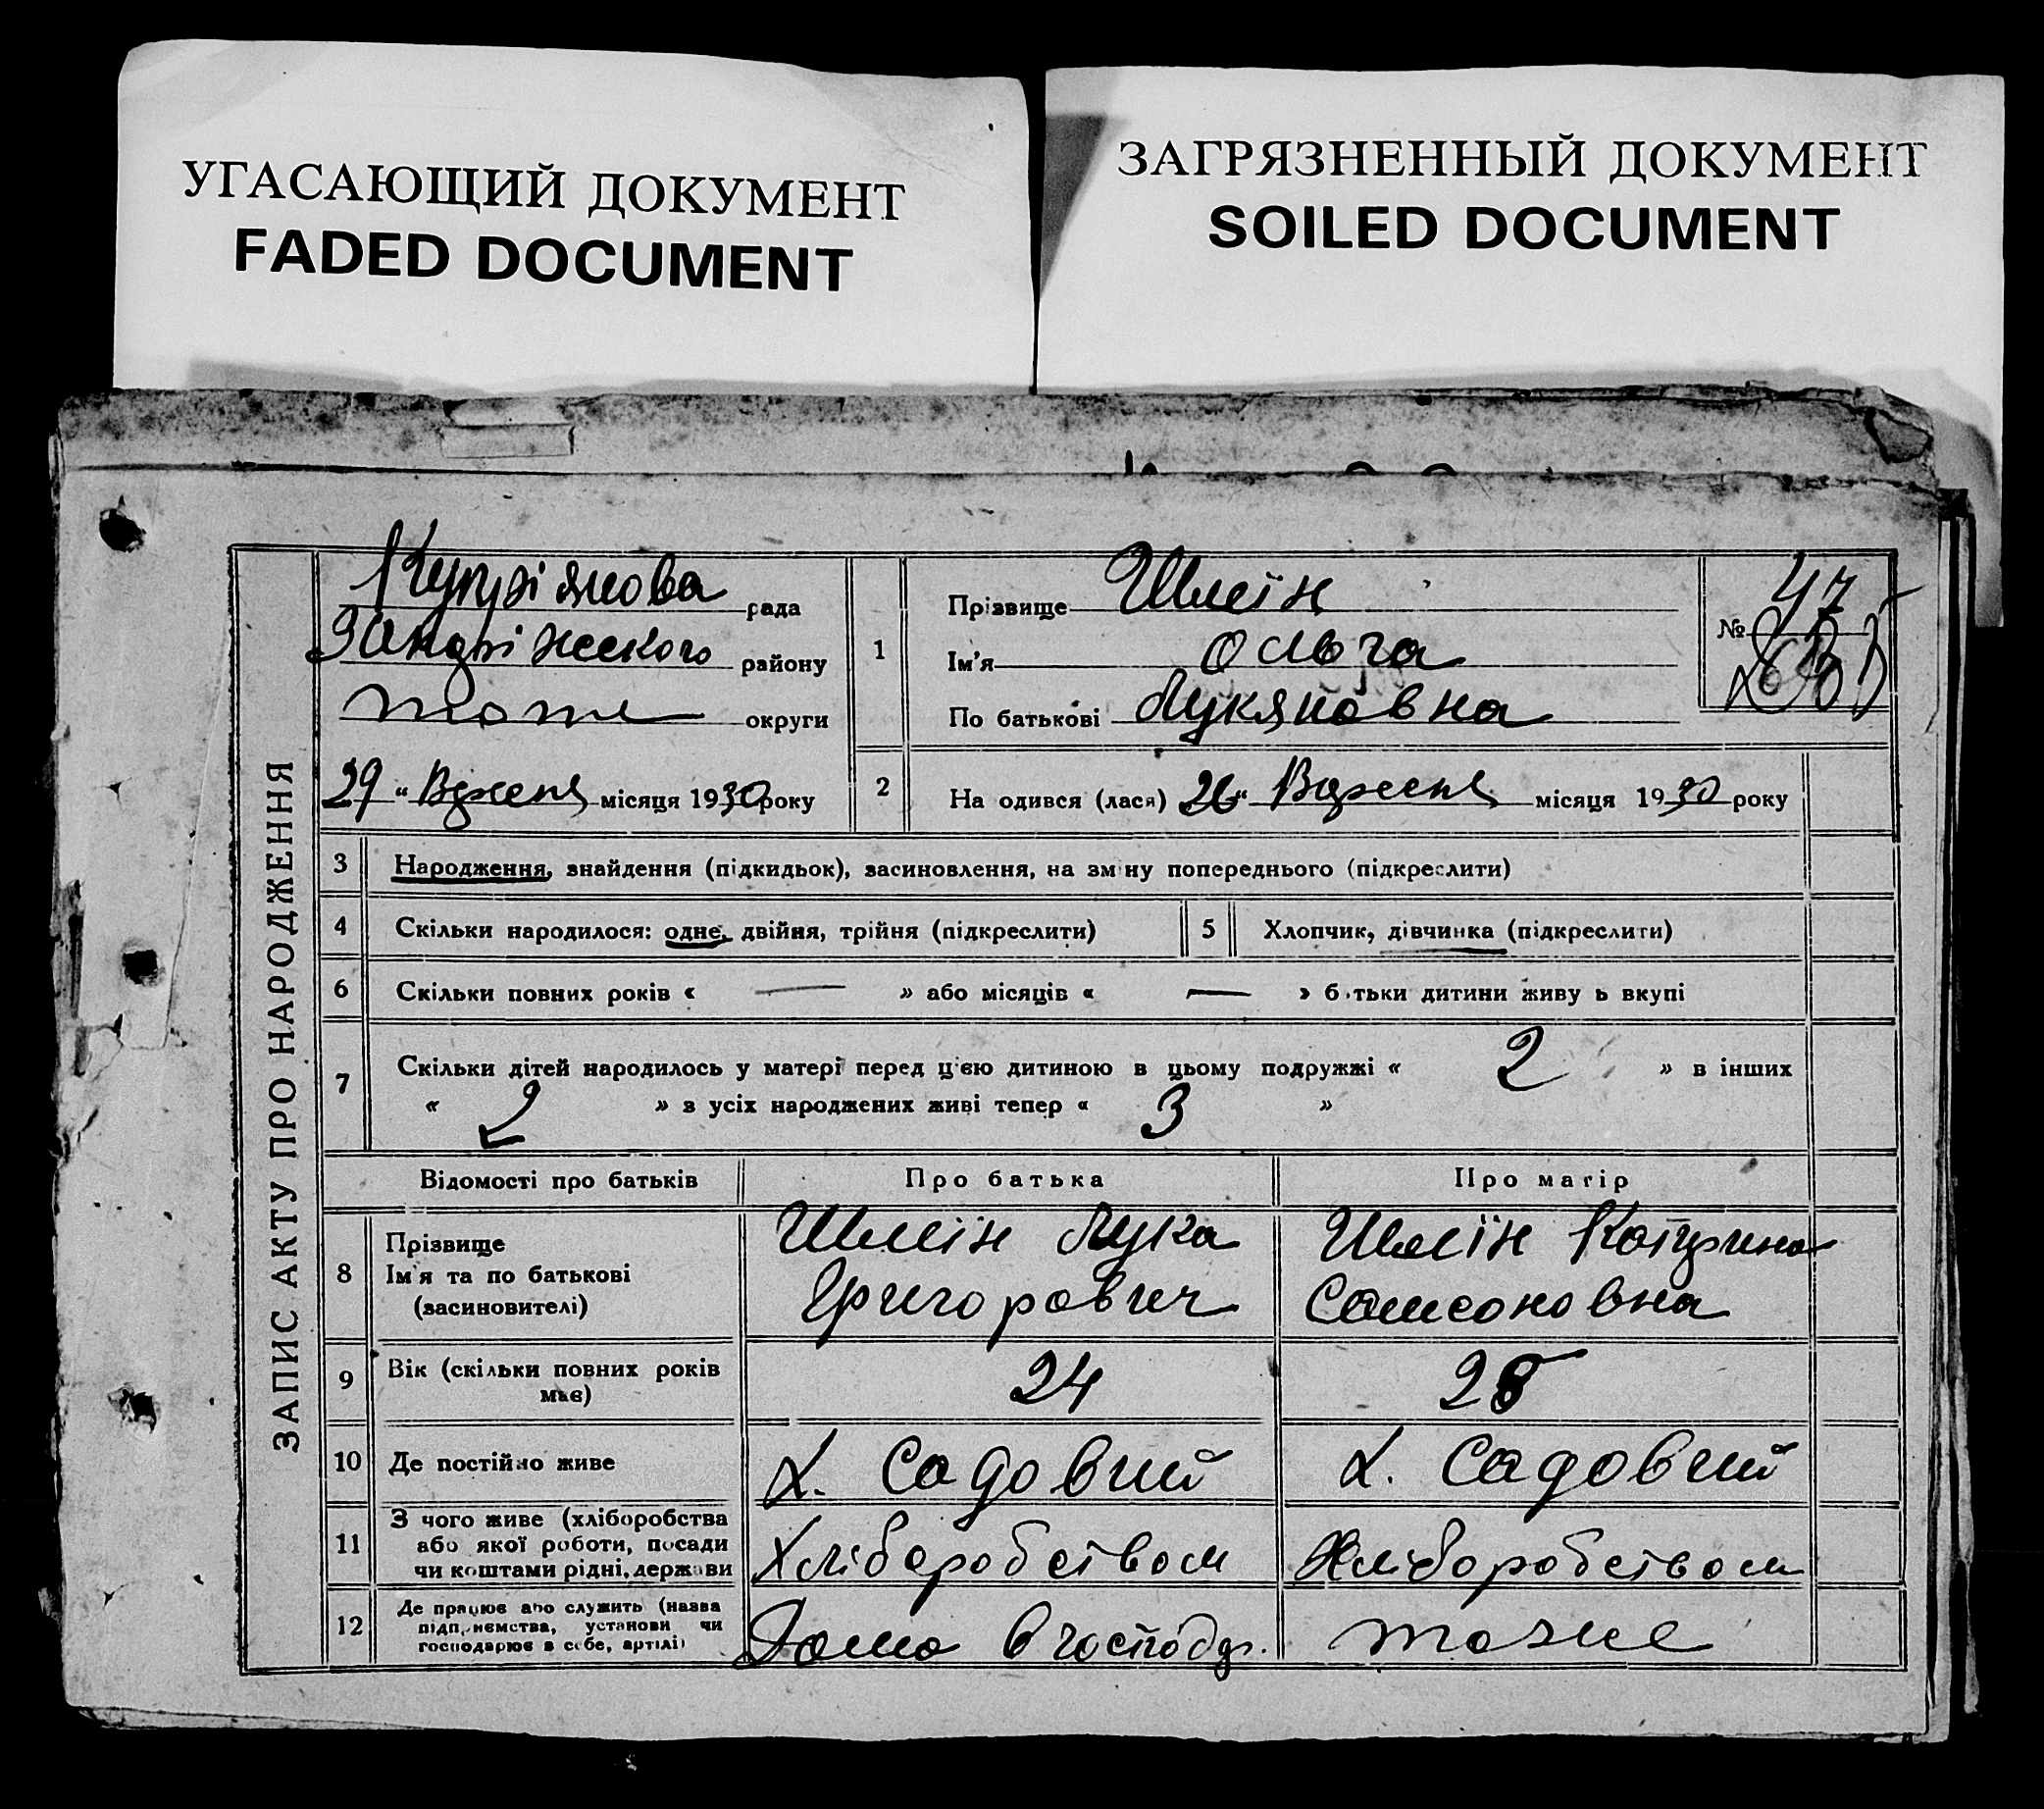 УГАСАЮЩИЙ ДОКУМЕНТ
FADED DOCUMENT
ЗАГРЯЗНЕННЫЙ ДОКУМЕНТ
SOILED DOCUMENT
ЗАПИС АКТУ ПРО НАРОДЖЕННЯ
Купріянова рада
району
округи
29 " Вересня місяця 1930 року
1
Прізвище Шлеїн
Ім'я Ольга
По батькові Лукяновна
№ 47
2 На одився (лася) 26 " Вересня місяця 1930 року
3 Народження, знайдення (підкидьок), засиновлення, на зміну попереднього (підкреслити)
4 Скільки народилося: одне, двійня, трійня (підкреслити)
5 Хлопчик, дівчинка (підкреслити)
6 Скільки повних років « — » або місяців « — » б тьки дитини живу ь вкупі
7 Скільки дітей народилось у матері перед цією дитиною в цьому подружжі « 2 » в інших
« 2 » з усіх народжених живі тепер « 3 »
Відомості про батьків Про батька Про матір
8 Прізвище
Ім'я та по батькові
(засиновителі)
Шлеїн Лука
Григорович
Шлеїн Катрина
Самсоновна
9 Вік (скільки повних років
має)
24
10 Де постійно живе
Х. Садовий
Х. Садовий
11 З чого живе (хліборобства
або якої роботи, посади
чи коштами рідні, держави
Хліборобством
Хліборобством
12 Де працює або служить (назва
підприємства, установи чи
господарює в себе, артілі)
Дома в господр.
тоже